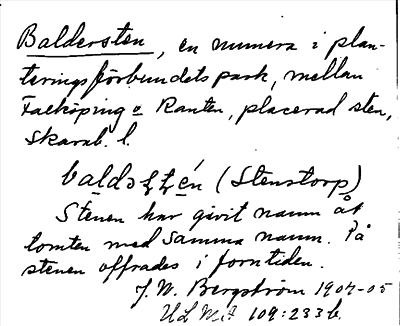 Baldersten, en numera i plan-
teringsförbundets park, mellan
Falköping o Ranten, placerad sten,
Skarab. l.
(Stenstorp)
Stenen har givit namn åt
tomten med samma namn. På
stenen offrades i forntiden.
J. W. Bergström 1904-05
ULMA 109:233 b.